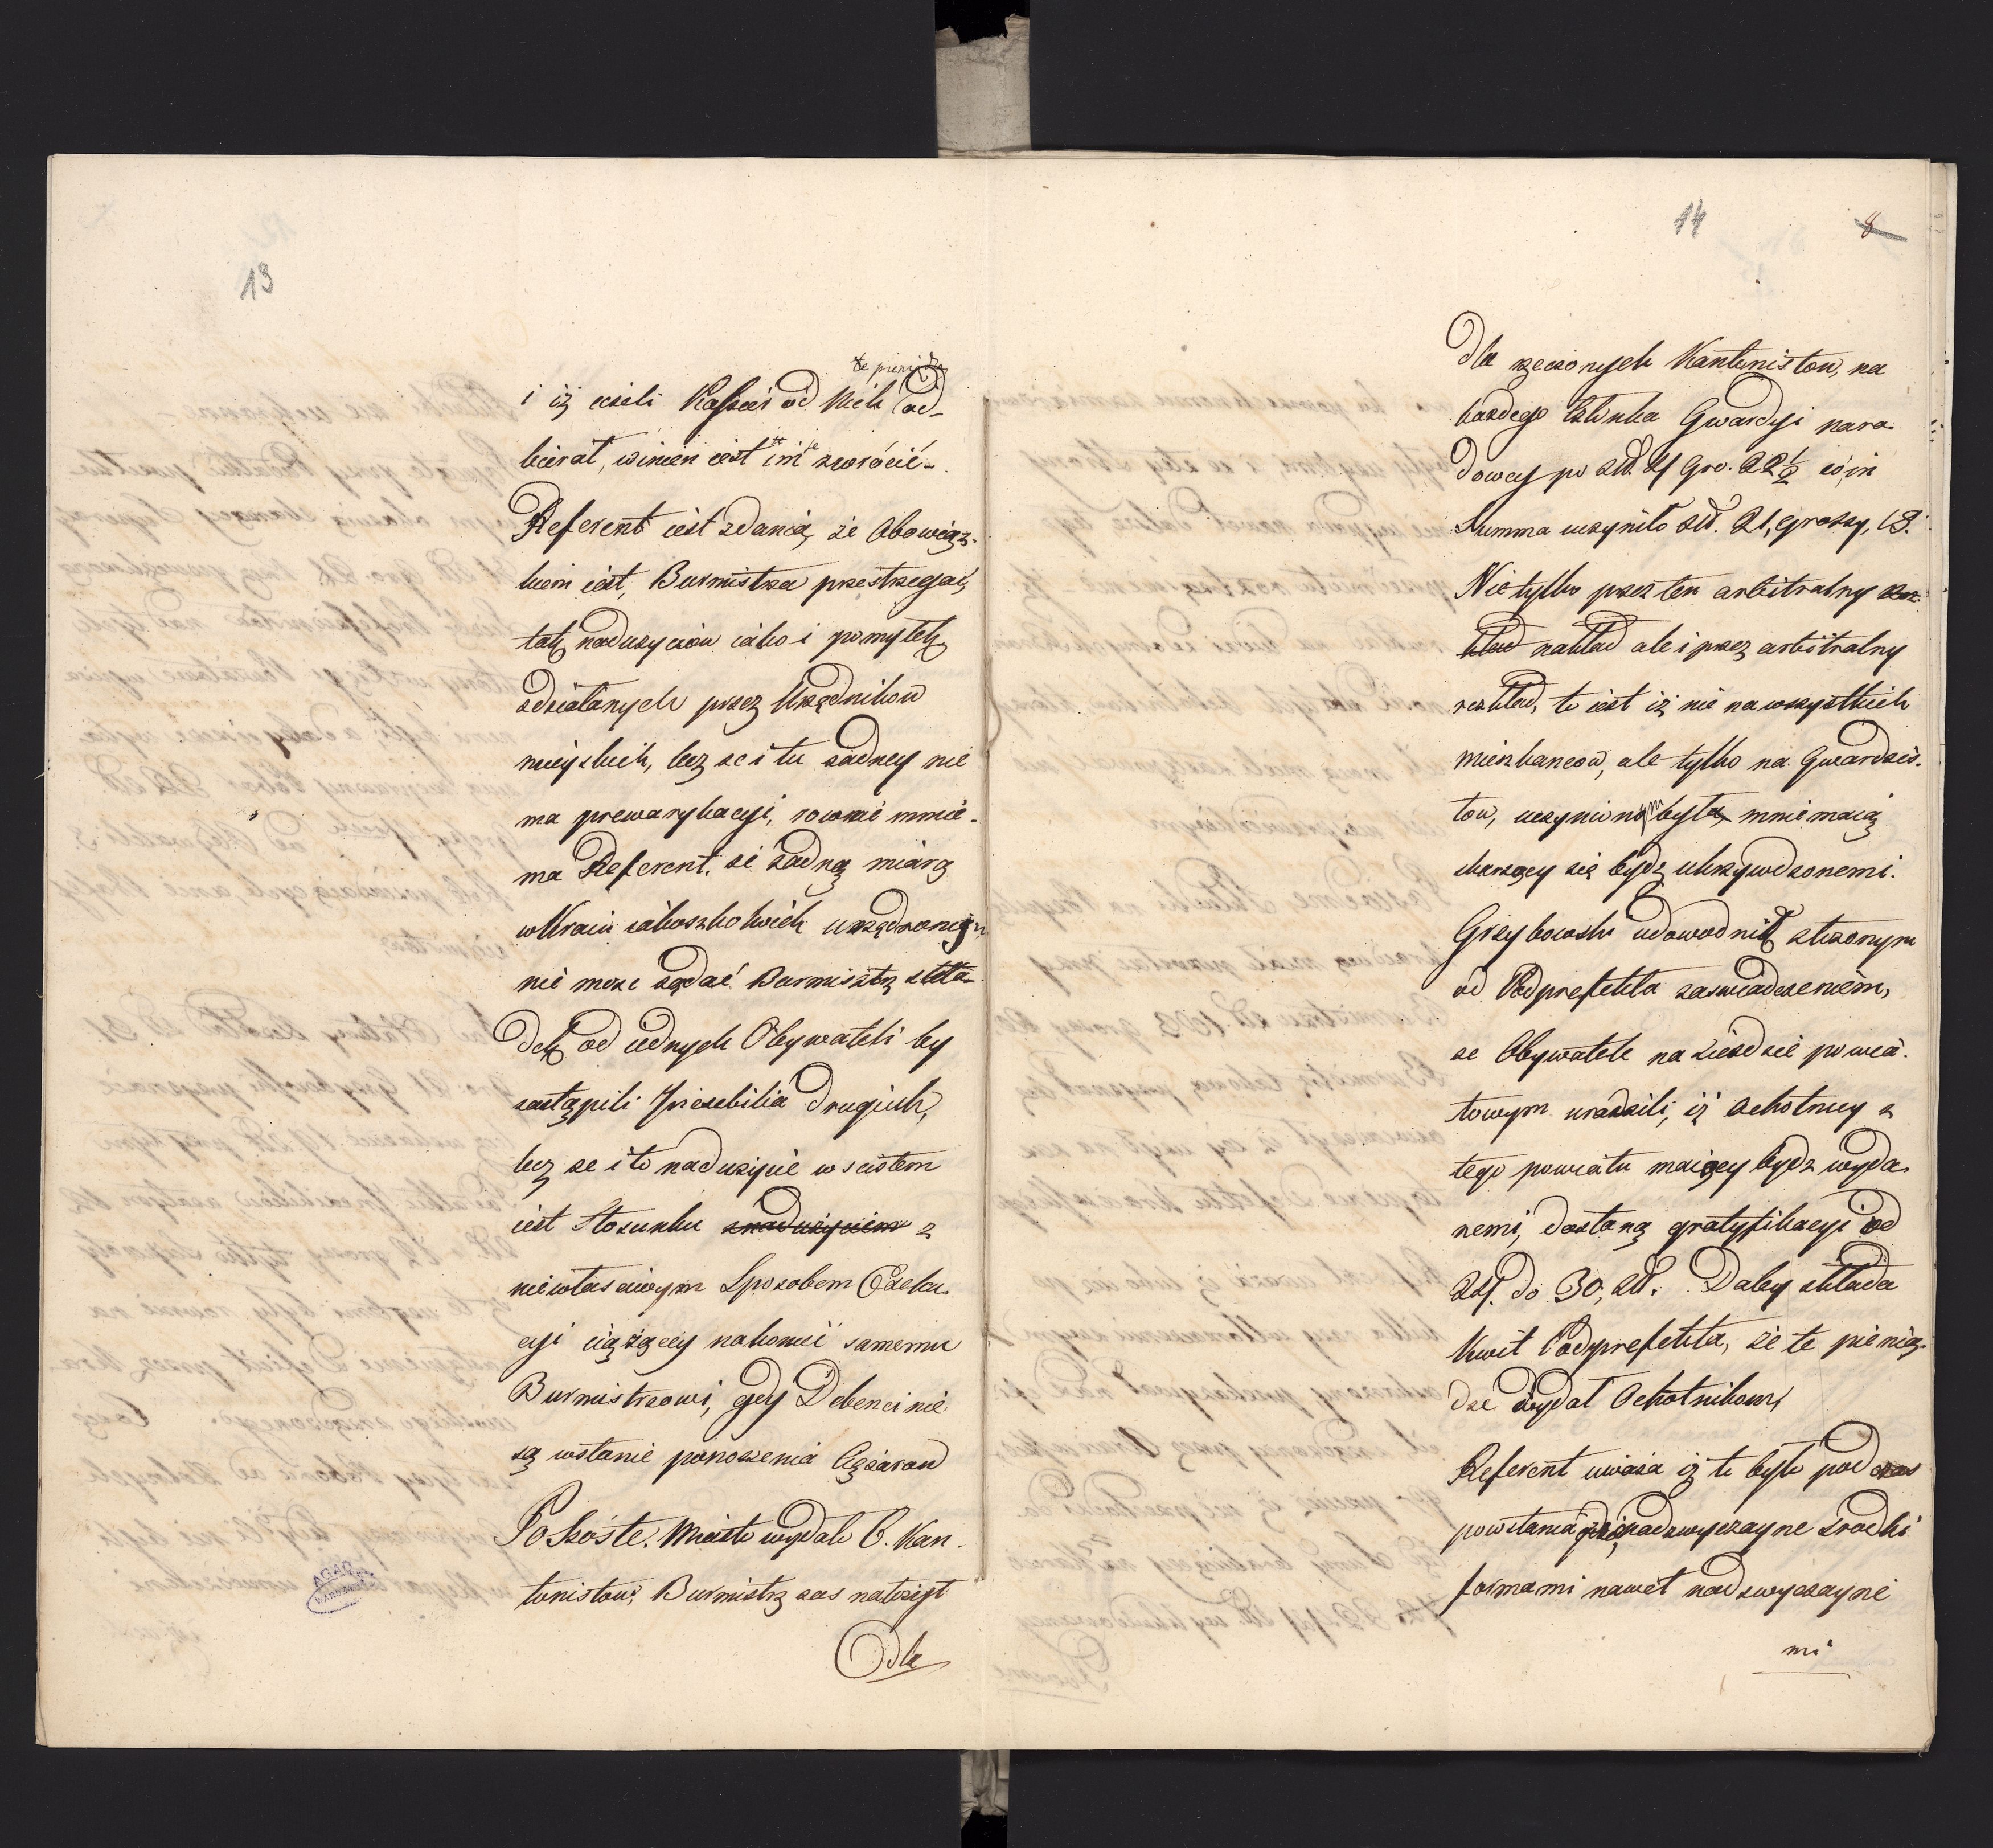 13
te pieniądze
i iż ieżeli Kassier od Nich od-
bierał, winien iest im ie zwrócić.
Referent iest zdania, że Obowiąz-
kiem iest, Burmistrza przestrzegać,
tak nadużyciów iako i pomyłek
zdziałanych przez Urzędników
mieyskich, lecz że i tu żadney nie
ma prewarykacyi, równie mnie-
ma Referent, że żadną miarą
w Kraiu iakoszkolwiek urządzonym
nie może żądać Burmistrz skła-
dek od iednych Obywateli by
zastąpili Inexebilia drugich,
lecz że i to nadużycie w scisłem
iest Stosunku z nadużyciem z
niewłaściwym Sposobem Exeku-
cyi ciążącey nakoniec samemu
Burmistrzowi, gdy Debenci nie
są wstanie ponoszenia Ciężarow
Po Szóste. Miasto wydało 6. Kan-
tonistow; Burmistrz zas nałożył
Dla
AGAD
WARSZAWA
14
8
Dla rzeczonych Kantonistow, na
każdego Członka Gwardyi naro-
dowey po Zł. 4 Gro. 22½ co in
Summa uczyniło Zł. 21, groszy, 13.
Nie tylko przez ten arbitralny roz-
kład nakład ale i przez arbitralny
rozkład, to iest iż nie na wszystkich
mieszkancow, ale tylko na Gwardzis-
tow, uczynionym była, mniemaią
skarżący się bydź ukrzywdzonemi.
Grzybowski udowodnił złożonym
od Podprefekta zaświadczeniem,
że Obywatele na Zieździe powia-
towym uradzili, iż Ochotnicy z
tego powiatu maiący bydź wyda-
nemi, dostaną gratyfikacyi od
24. do 30, Zł. Daley składa
Kwit Podprefekta, że te pienią-
dze wydał Ochotnikom,
Referent uważa iż to było pod czas
powstania gdzie nadzwyczayne srodki
formami nawet nadzwyczayne
mi